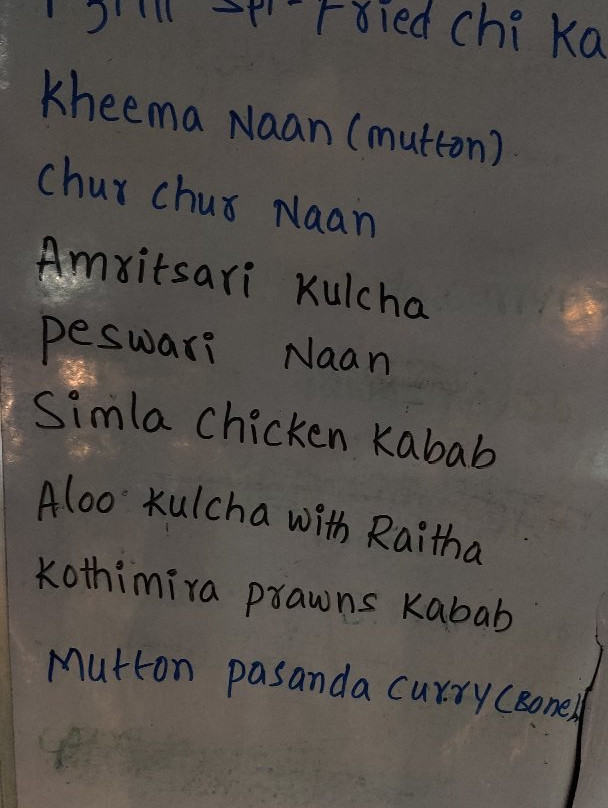 Spl- Fried Chi Ka
Kheema Naan (mutton)
Chur chur Naan
Amritsari Kulcha
Peswari Naan
Simla Chicken Kabab
Aloo Kulcha with Raitha
Kothimira prawns Kabab
Mutton pasanda curry (Bonel